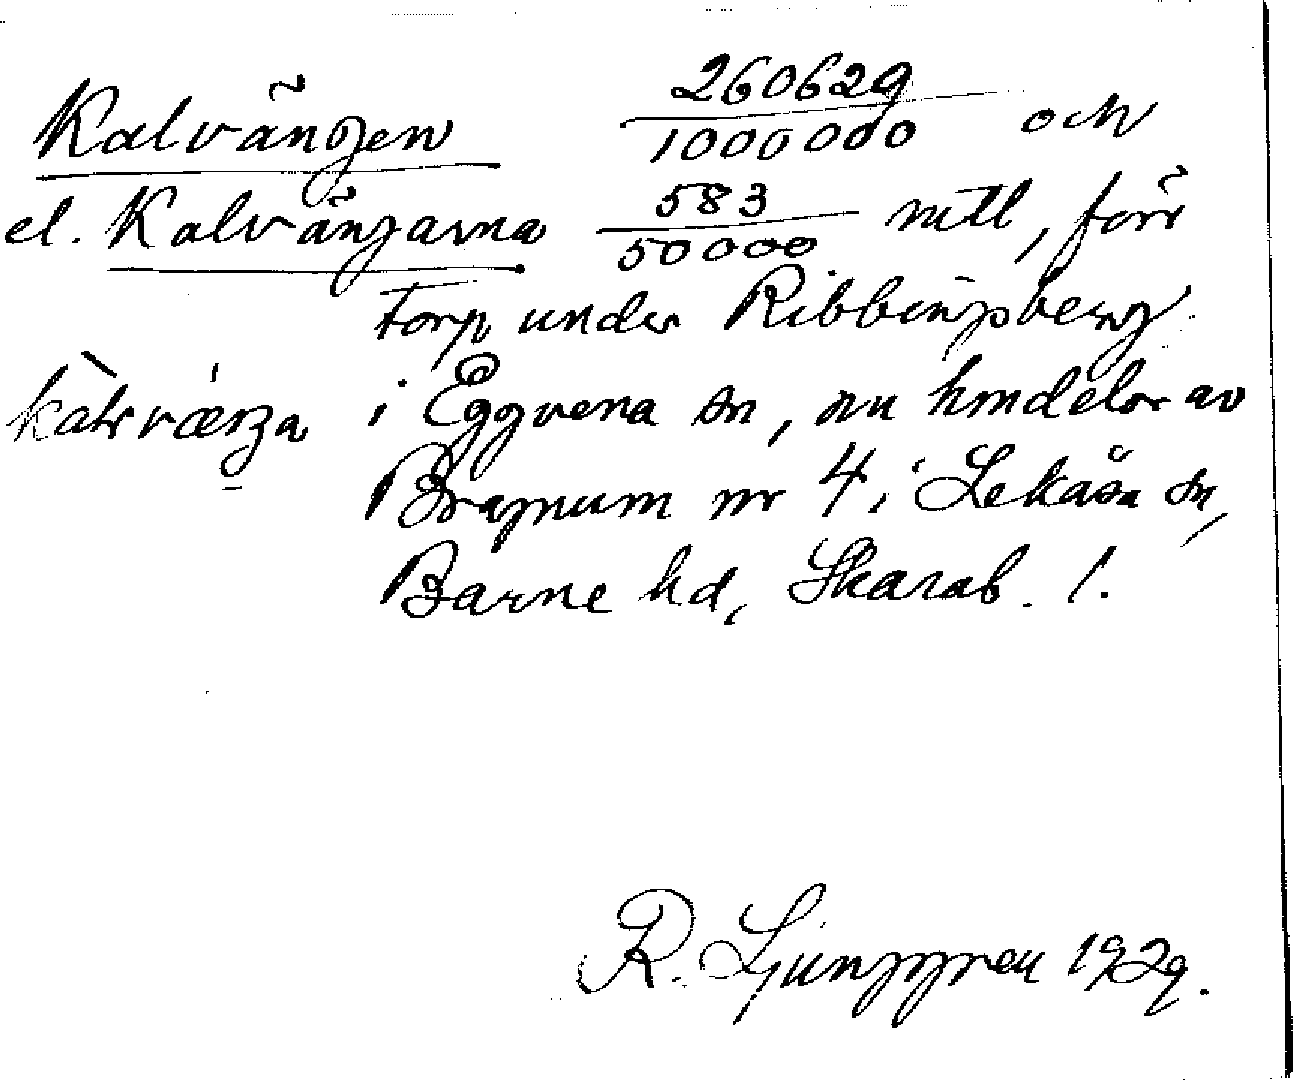 Kalvängen 260629/1000000 och
el. Kalvängarna 583/50000 mtl, förr
torp under Ribbingsberg
i Eggvena sn, nu hmdelar av
Bragnum nr 4 i Lekåsa sn,
Barne hd, Skarab. l.
R. Ljunggren 1929.